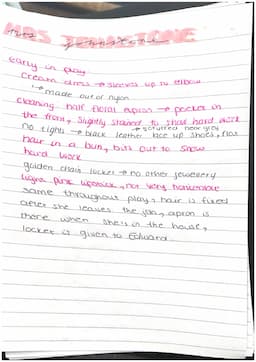 MRS JOHNSTONE
Mrs Johnstone
Early in play
cream dress → sleeves up to elbow
↳ made out of nylon
cleaning half floral apron → pocket in
the front, slightly stained to show hard work
no tights → black leather lace up shoes, flat
↳ scuffed near
hair in a bun, bits out to show
hard work
golden chain locket → no other jewellery
light pink lipstick, not very noticeable
same throughout play, hair is fixed
after she leaves the job, apron is
there when she's in the house,
locket is given to Edward